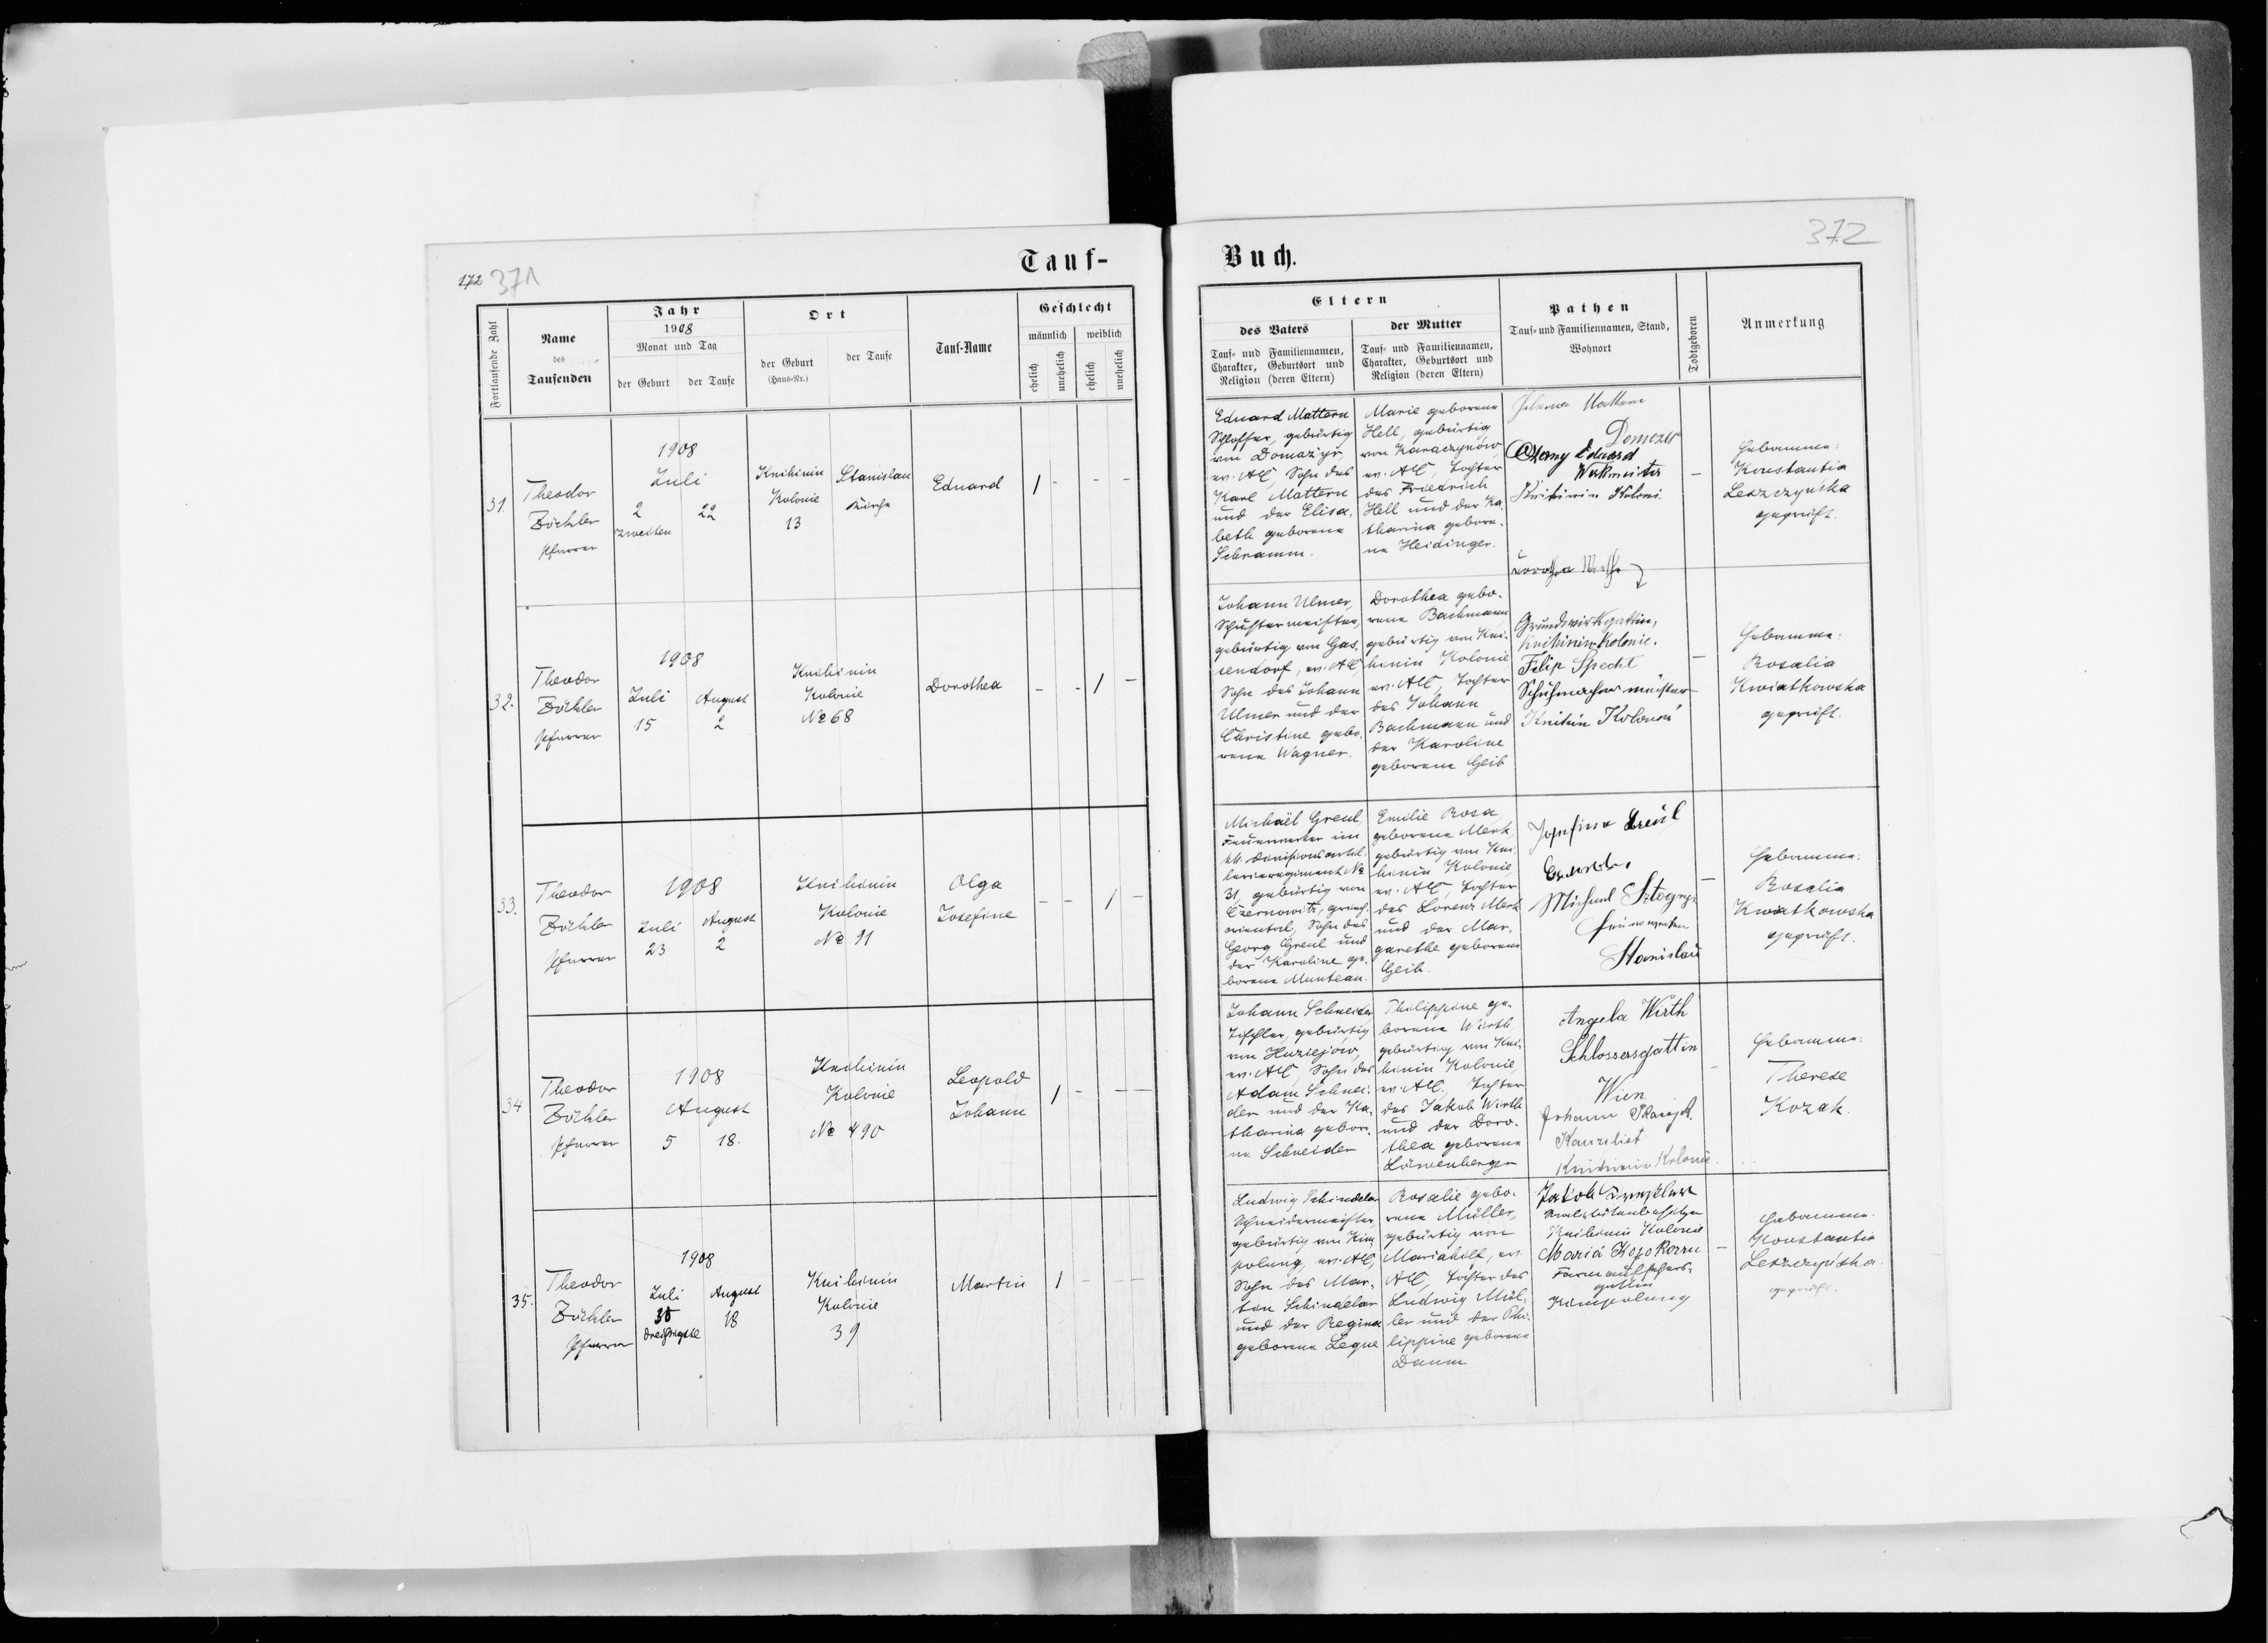 172 371
Tauf-
Fortlaufende Zahl
Name
des
Taufenden
Jahr
1908
Monat und Tag
der Geburt
der Taufe
Ort
der Geburt
(Haus-Nr.)
der Taufe
Tauf-Name
Geschlecht
männlich
weiblich
ehelich
unehelich
ehelich
unehelich
31.
Theodor
Zöckler
Pfarrer
1908
Juli
2
zweiten
22
Knihinin
Kolonie
13
Stanislau
Kirche
Eduard
1 - - -
32.
Theodor
Zöckler
Pfarrer
1908
Juli August
15 2
Knihinin
Kolonie
№ 68
Dorothea
- - 1 -
33.
Theodor
Zöckler
Pfarrer
1908
Juli August
23 2
Knihinin
Kolonie
№ 91
Olga
Josefine
- - 1 -
34
Theodor
Zöckler
Pfarrer
1908
August
5 18.
Knihinin
Kolonie
№ 490
Leopold
Johann
1 - - -
35.
Theodor
Zöckler
Pfarrer
1908
Juli August
30 18
dreißigste
Knihinin
Kolonie
39
Martin
1 - - -
372
Buch.
Eltern
des Vaters
Tauf- und Familiennamen,
Charakter, Geburtsort und
Religion (deren Eltern)
der Mutter
Tauf- und Familiennamen,
Charakter, Geburtsort und
Religion (deren Eltern)
Pathen
Tauf- und Familiennamen, Stand,
Wohnort
Todtgeboren
Anmerkung
Eduard Mattern
Schlosser, gebürtig
von Domażyr,
ev. AC, Sohn des
Karl Mattern
und der Elisa-
beth geborene
Schramm.
Marie geborene
Hell, gebürtig
von Karaczynów,
ev. AC, Tochter
des Friedrich
Hell und der Ka-
tharina gebore-
ne Heidinger.
Mattern
Eduard
Werkmeister
Knihinin Koloni
-
Hebamme:
Konstantia
Leszczyńska
geprüft.
Johann Ulmer,
Schustermeister,
gebürtig von Gas-
sendorf, ev. AC,
Sohn des Johann
Ulmer und der
Christine gebo-
rene Wagner.
Dorothea gebo-
rene Bachmann
gebürtig von Kni-
hinin Kolonie
ev. AC, Tochter
des Johann
Bachmann und
der Karoline
geborene Geib
Dorothea
Grundwirthsgattin,
Knihinin-Kolonie.
Filip Specht
Schuhmachermeister
Knihinin Kolonie
-
Hebamme:
Rosalia
Kwiatkowska
geprüft.
Michael Greul,
Feuerwerker im
kk. Divisionsartil-
lerieregiment №
31, gebürtig von
Czernowitz, griech.
oriental., Sohn des
Georg Greul und
der Karoline ge-
borene Muntean.
Emilie Rosa,
geborene Merk,
gebürtig von Kni-
hinin Kolonie,
ev. AC, Tochter
des Lorenz Merk
und der Mar-
garethe geborene
Geib.
Josefine Greul
Michael
Feuerwerker
Stanislau
-
Hebamme:
Rosalia
Kwiatkowska
geprüft.
Johann Schneider
Tischler, gebürtig
von Huziejów,
ev. AC, Sohn des
Adam Schnei-
der und der Ka-
tharina gebore-
ne Schneider
Philippine ge-
borene Wirth,
gebürtig von Kni-
hinin Kolonie,
ev. AC. Tochter
des Jakob Wirth
und der Doro-
thea geborene
Löwenberger
Angela Wirth
Schlossersgattin
Wien
Johann
Kanzlist
Knihinin Kolonie.
-
Hebamme:
Therese
Kozak.
Ludwig Schindelar
Schneidermeister,
gebürtig von Kim-
polung, ev. AC,
Sohn des Mar-
tin Schindelar
und der Regina
geborene Legne
Rosalie gebo-
rene Müller,
gebürtig von
Mariahilf, ev
AC, Tochter des
Ludwig Mül-
ler und der Phi-
lippine geborene
Daum
Jakob
Realitätenbesitzer
Knihinin Kolonie
Maria
gattin
Kimpolung
-
Hebamme.
Konstantia
Leszczyńska.
geprüft.